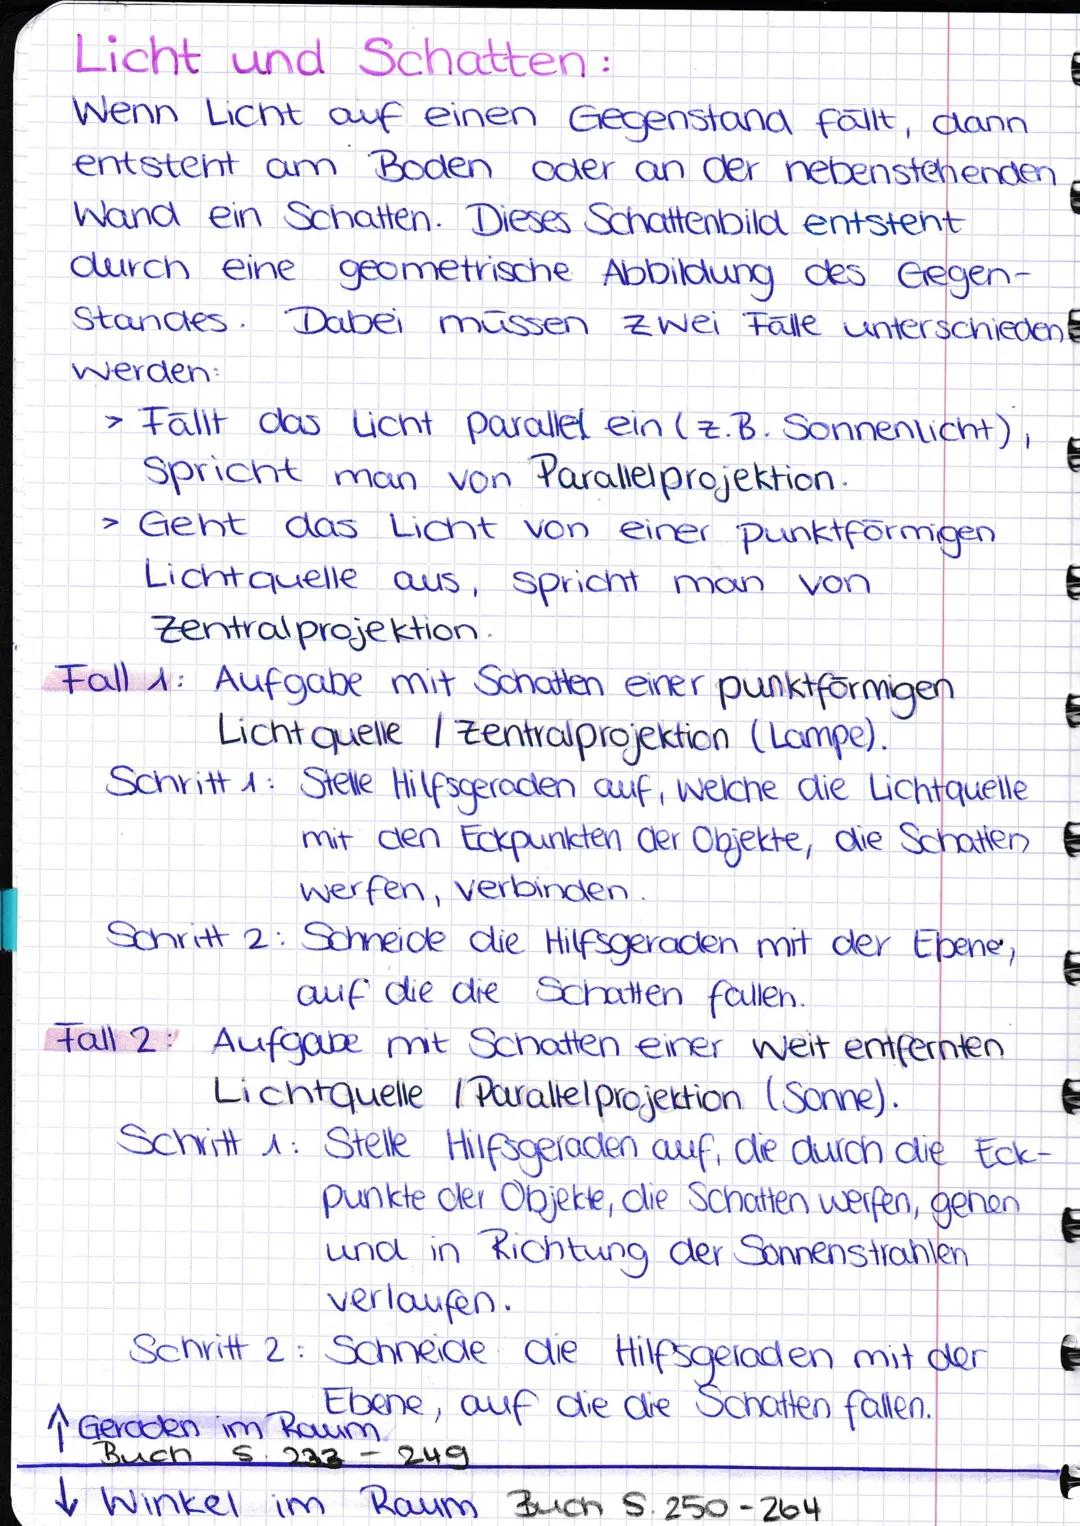 Licht und Schatten:
Wenn Licht auf einen Gegenstand fällt, dann
entsteht am Boden oder an der nebenstehenden
Wand ein Schatten. Dieses Schattenbild entsteht
durch eine geometrische Abbildung des Gegen-
standes. Dabei müssen zwei Fälle unterschieden
werden:
> Fällt das Licht parallel ein (z.B. Sonnenlicht),
spricht man von Parallelprojektion.
> Geht das Licht von einer punktförmigen
Lichtquelle aus, spricht man von
Zentralprojektion.
Fall 1: Aufgabe mit Schatten einer punktförmigen
Lichtquelle / Zentralprojektion (Lampe).
Schritt 1: Stelle Hilfsgeraden auf, welche die Lichtquelle
mit den Eckpunkten der Objekte, die Schatten
werfen, verbinden.
Schritt 2: Schneide die Hilfsgeraden mit der Ebene,
auf die die Schatten fallen.
Fall 2: Aufgabe mit Schatten einer weit entfernten
Lichtquelle / Parallelprojektion (Sonne).
Schritt 1: Stelle Hilfsgeraden auf, die durch die Eck-
punkte der Objekte, die Schatten werfen, gehen
und in Richtung der Sonnenstrahlen
verlaufen.
Schritt 2: Schneide die Hilfsgeraden mit der
Ebene, auf die die Schatten fallen.
↑ Geraden im Raum
Buch S. 233 - 249
↓ Winkel im Raum Buch S. 250 - 264